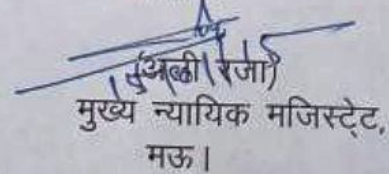 (अली रजा)
मुख्य न्यायिक मजिस्ट्रेट,
मऊ।